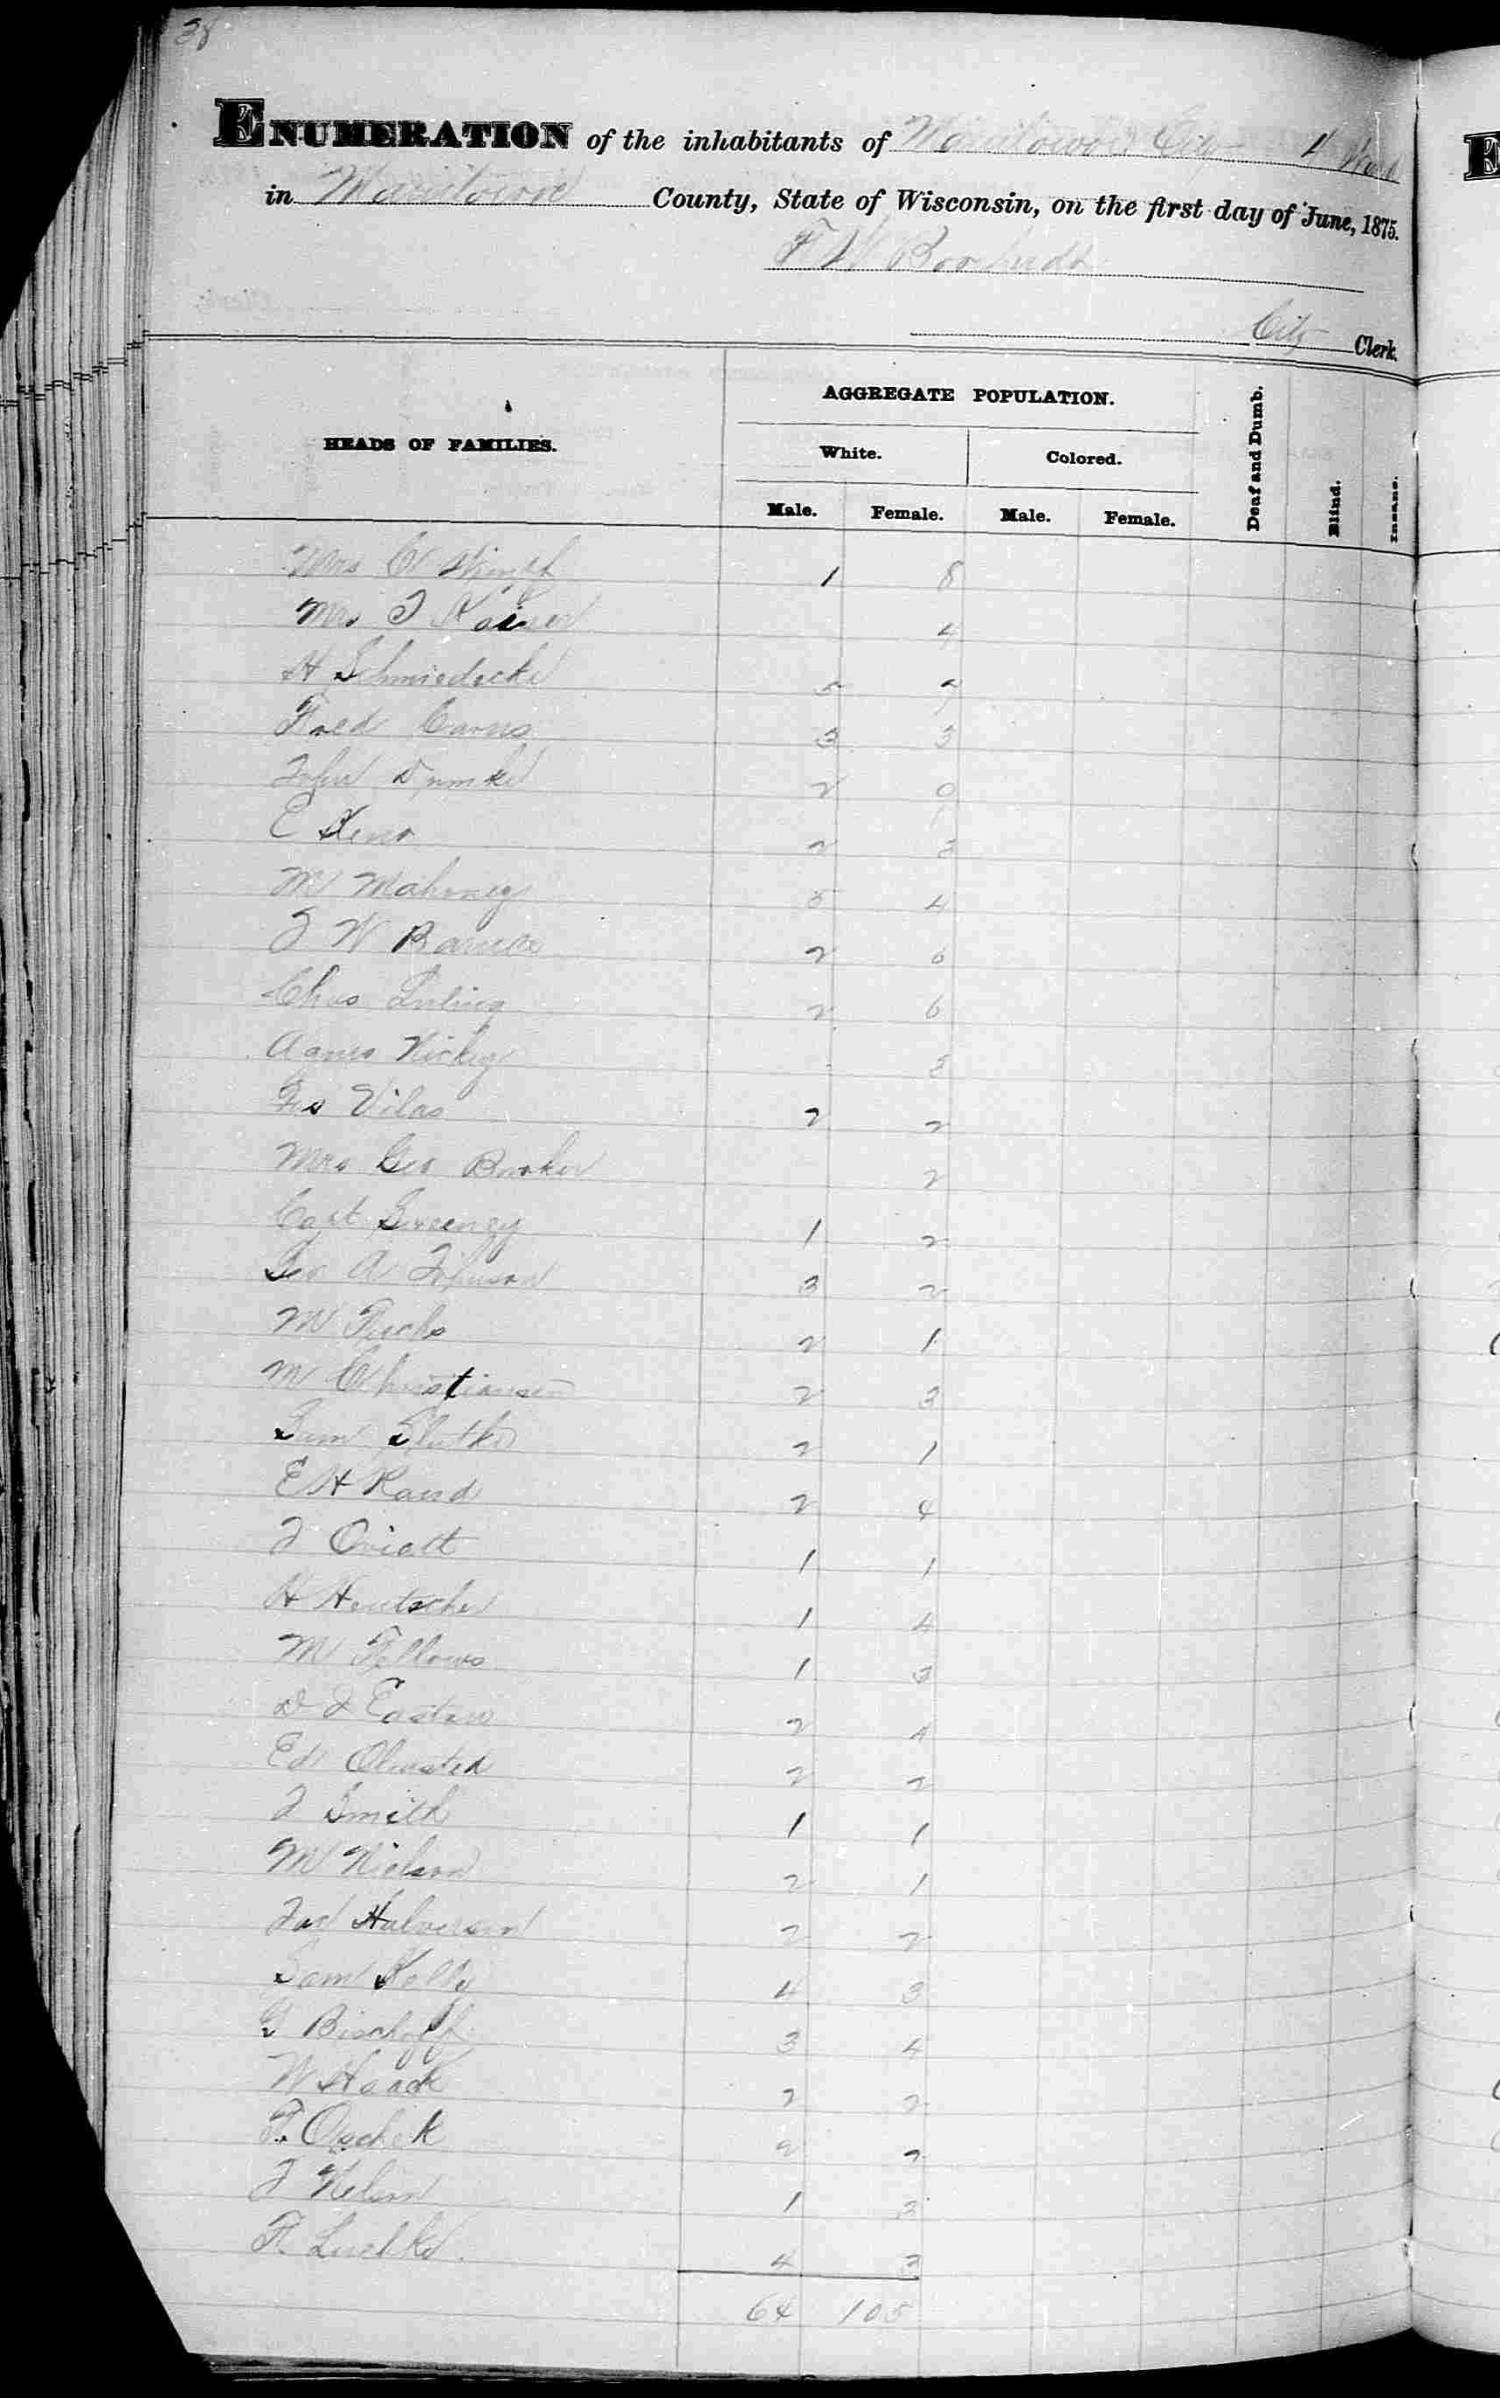 38
ENUMERATION of the inhabitants of Manitowoc City 4 Ward
in Manitowoc County, State of Wisconsin, on the first day of June, 1875.
F W Borcherdt
City Clerk.
HEADS OF FAMILIES.
AGGREGATE POPULATION.
White. Colored.
Male. Female. Male. Female. Deaf and Dumb. Blind. Insane.
Mrs C 1 8
Mrs J Kaiser 4
H Schmiedecke 5
Fred Carns 3 3
John 2 0
E 2 3
M Mahoney 5 4
J W Barnes 2 6
Chas Luling 2 6
Agnes Hickey
Jos Vilas 2 2
Mrs Geo Booker 2
Capt Sweeney 1 2
Geo A Johnson 3 2
M Fuchs 2 1
M Christiansen 2 3
Sam 2 1
E H Rand 2 4
J Oviatt 1 1
H Hentschel 1 4
M Fellows 1 3
D J Easton 2 4
Ed Olmsted 2 2
J Smith 1 1
M Nielson 2 1
Jas Halverson 2 2
Sam Kelly 4 3
G Bischoff 3 4
W Haack 2 2
F. Oschek 2
J Nelson 1 3
F. Luebke 4
64 105